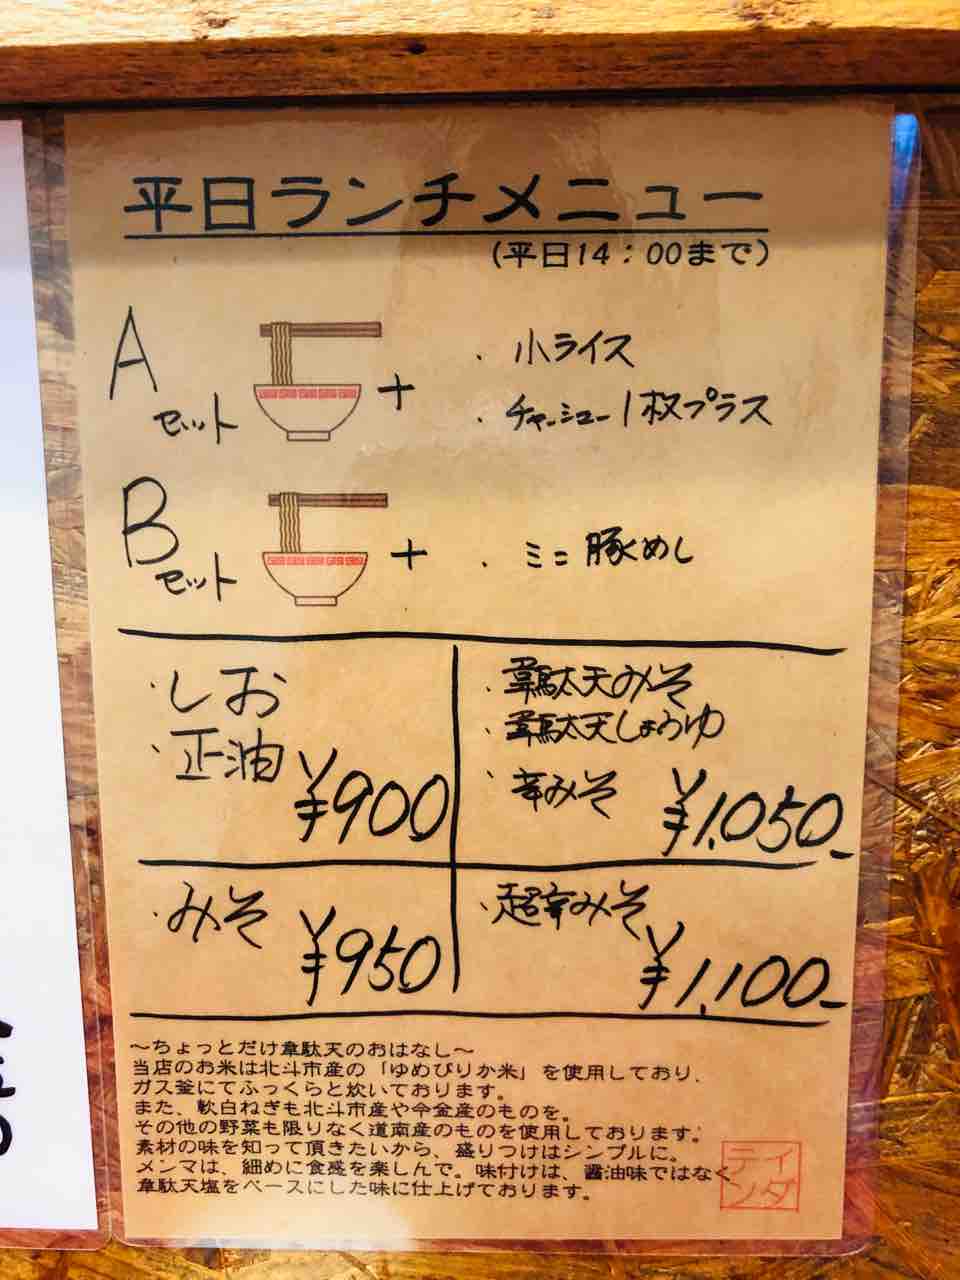 平日ランチメニュー
(平日14:00まで)
A
セット
+
・小ライス
・チャーシュー1枚プラス
B
セット
+
・ミニ豚めし
・しお
・正油
¥900
・韋駄天みそ
・韋駄天しょうゆ
・辛みそ
¥1,050-
・みそ
¥950
・超辛みそ
¥1,100-
～ちょっとだけ韋駄天のおはなし～
当店のお米は北斗市産の「ゆめぴりか米」を使用しており、
ガス釜にてふっくらと炊いております。
また、軟白ねぎも北斗市産や今金産のものを。
その他の野菜も限りなく道南産のものを使用しております。
素材の味を知って頂きたいから、盛りつけはシンプルに。
メンマは、細めに食感を楽しんで。味付けは、醤油味ではなく
韋駄天塩をベースにした味に仕上げております。
イダ
テン